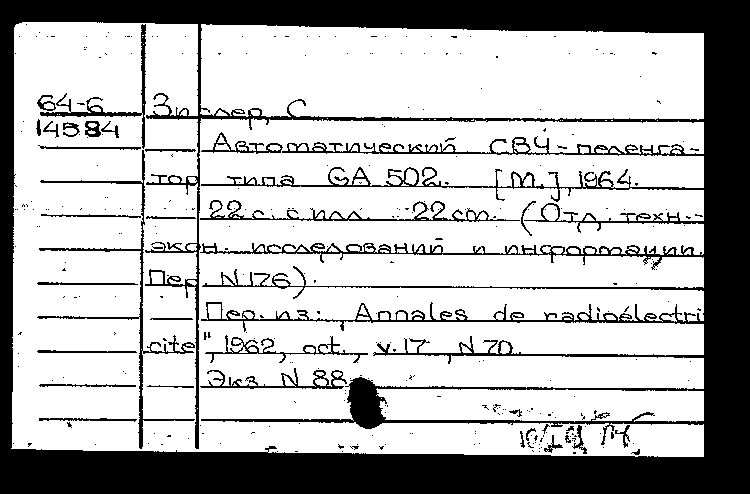 64-6 Зислер, С
14584
Автоматический СВЧ-пеленга-
тор типа GA 502. [М.], 1964.
22 с. с илл. 22 см. (Отд. техн.-
экон. исследований и информации.
Пер. N 176).
Пер. из: "Annales de radioélectri
cite", 1962, oct., v. 17, N 70.
Экз. N 88